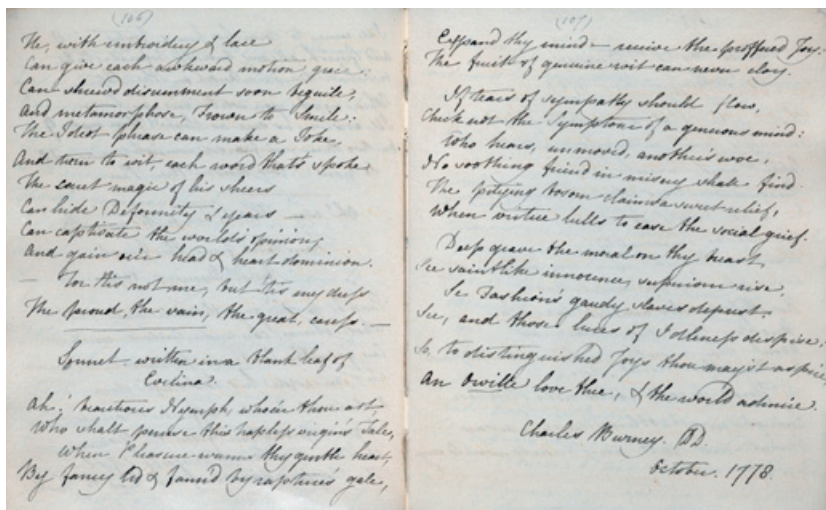 (106)
He, with embroidery & lace
Can give each awkward motion grace:
Can shrewd discernment soon beguile,
And metamorphose, Frown to Smile:
The Idiot phrase can make a Joke,
And turn to wit, each word that's spoke
The secret magic of his sheers
Can hide Deformity & years —
Can captivate the world's opinion,
And gain o'er head & heart dominion.
— For tis not me, but tis my dress
The proud, the vain, the great, caress —
Sonnet written in a blank leaf of
Evelina.
Ah! beauteous Nymph, whoe'er thou art,
Who shalt peruse this hapless virgin's Tale,
When Pleasure warms thy gentle heart,
By fancy led & fann'd by rapture's gale,
(107)
Expand thy mind – receive the proffered Joy:
The fruit of genuine wit can never cloy.
If tears of sympathy should flow,
Check not the Symptons of a generous mind:
Who hears, unmoved, another's woe,
No soothing friend in misery shall find.
The pitying bosom claims a sweet relief,
When virtue bills to ease the social grief.
Deep grave the moral on thy breast,
See saintlike innocence, superior rise,
See Fashion's gaudy slaves deprest,
See, and those lures of Idleness dispise:
So, to distinguished Joys thou mayst aspire,
An Orville love thee, & the world admire.
Charles Burney. DD.
October. 1778.